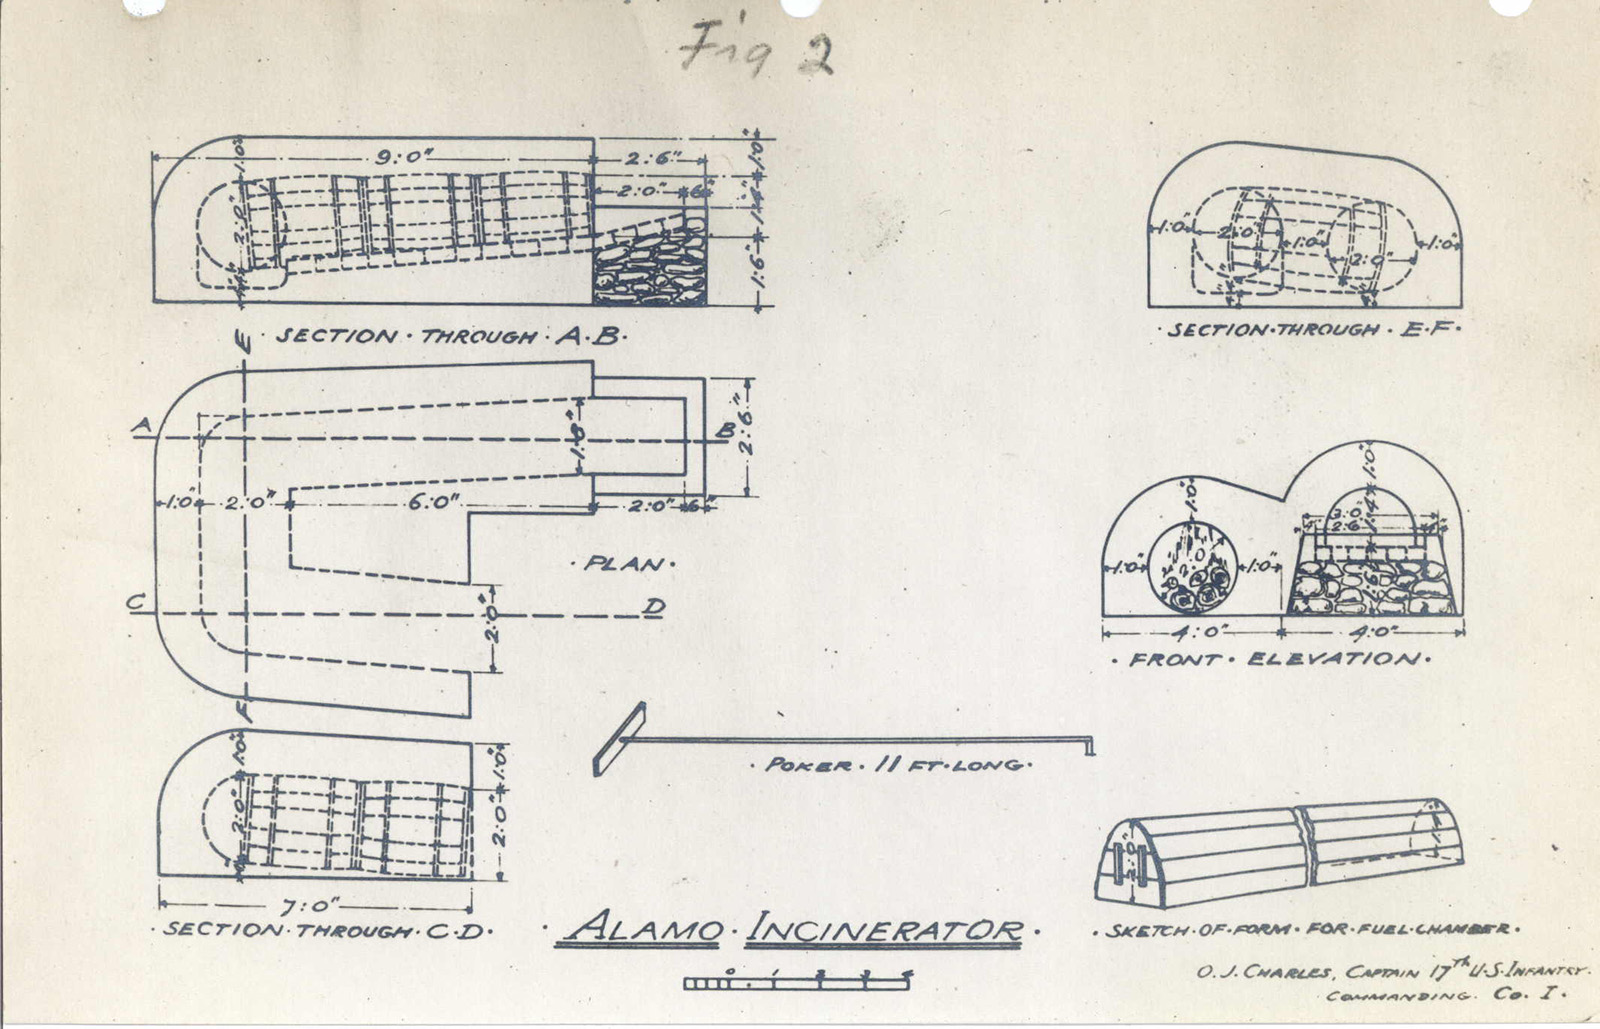 Fig 2
9:0" 2:6" 1:0"
2:0" 6"
1:0" 2:0" 1:4" 1:6"
· SECTION · THROUGH · A·B·
E
A B
1:8" 2:6"
1:0" 2:0" 6:0" 2:0" 6"
· PLAN ·
C D
2:0"
F
1:0" 2:0" 1:0" 2:0"
7:0"
· SECTION · THROUGH · C·D·
1:0" 2:0" 1:0" 2:0" 1:0"
· SECTION · THROUGH · E·F·
1:0" 1:0"
3:0"
2:6" 1:4"
1:0" 1:0" 1:6"
4:0" 4:0"
· FRONT · ELEVATION ·
· POKER · 11 FT · LONG ·
2:0"
· SKETCH · OF · FORM · FOR · FUEL · CHAMBER ·
· ALAMO · INCINERATOR ·
0 1 2 3 4
O. J. CHARLES, CAPTAIN 17th U·S·INFANTRY·
COMMANDING. CO. I.